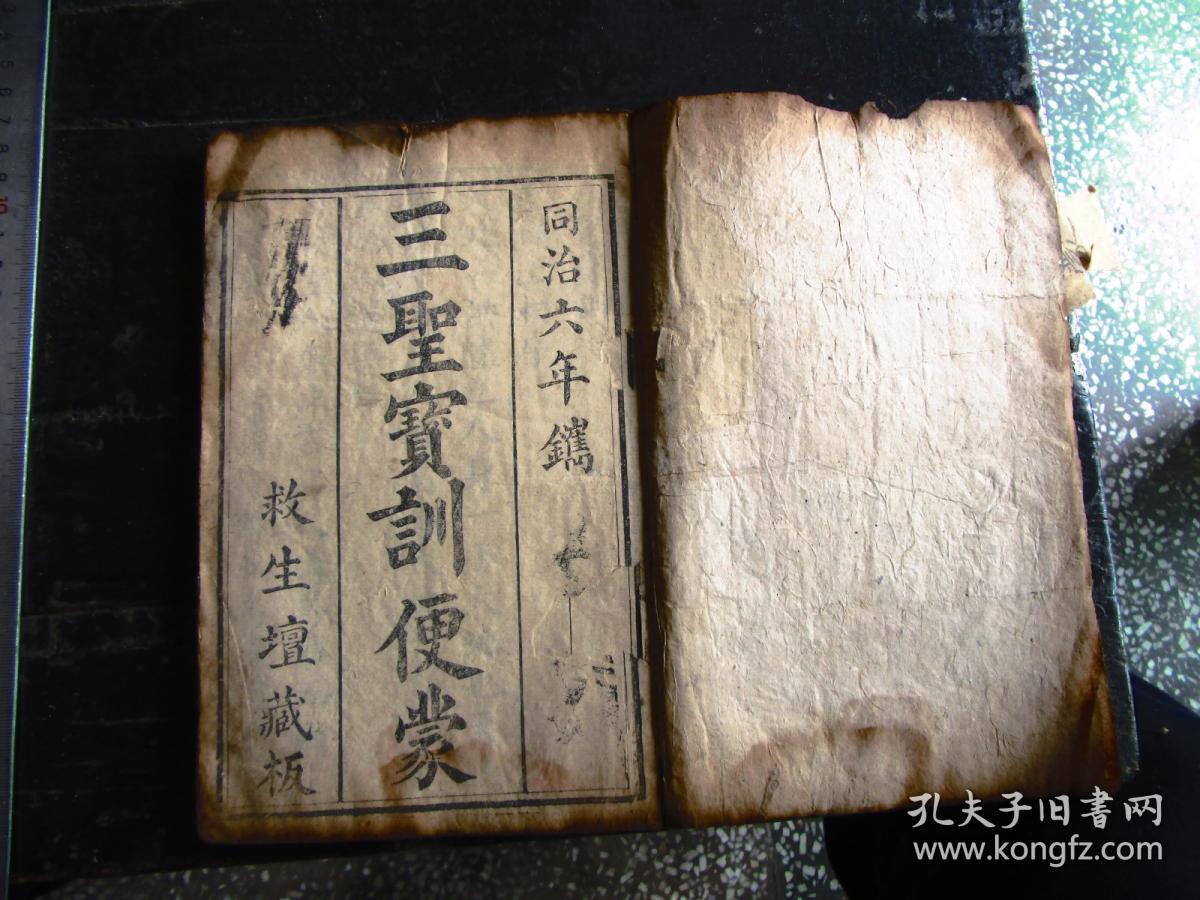 同治六年鐫
三聖寶訓便蒙
救生壇藏板
孔夫子旧書网
www.kongfz.com